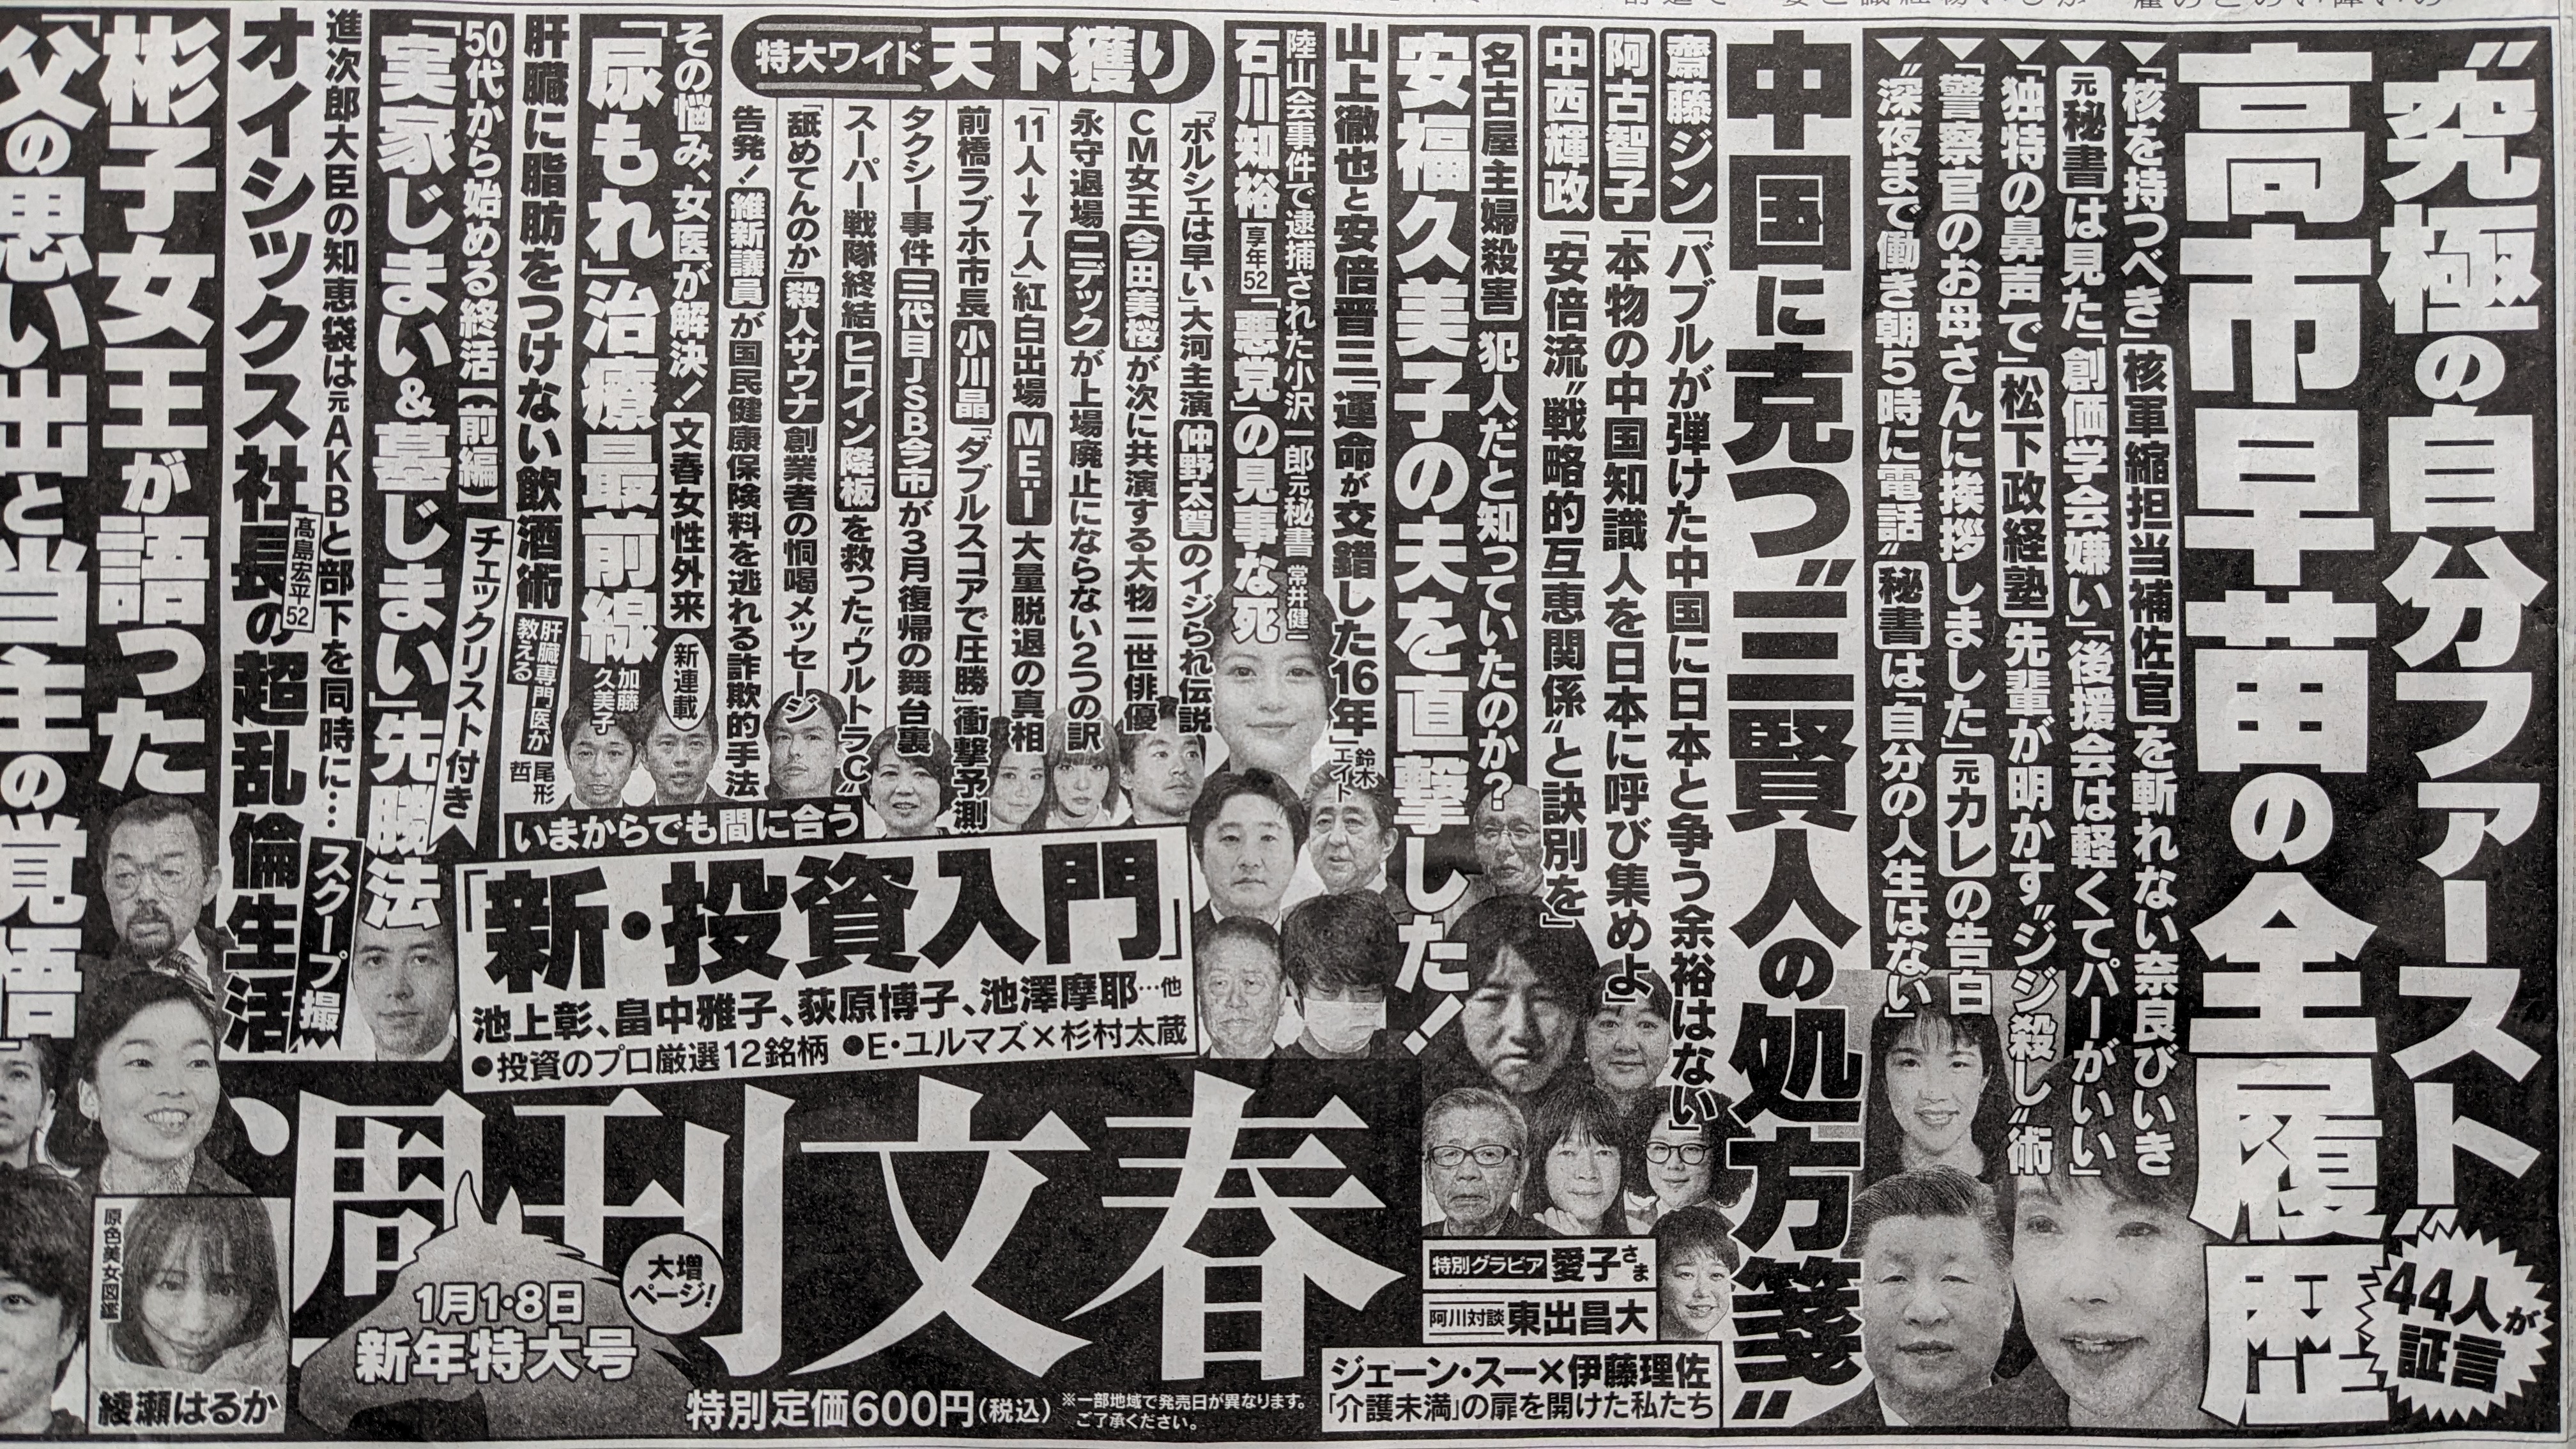 “究極の自分ファースト”
44人が証言
高市早苗の全履歴
▼「核を持つべき」核軍縮担当補佐官を斬れない奈良びいき
▼元秘書は見た「創価学会嫌い」「後援会は軽くてパーがいい」
▼「独特の鼻声で」松下政経塾先輩が明かす“ジジ殺し”術
▼「警察官のお母さんに挨拶しました」元カレの告白
▼“深夜まで働き朝5時に電話”秘書は「自分の人生はない」
中国に克つ“三賢人の処方箋”
齋藤ジン「バブルが弾けた中国に日本と争う余裕はない」
阿古智子「本物の中国知識人を日本に呼び集めよ」
中西輝政「安倍流“戦略的互恵関係”と訣別を」
名古屋主婦殺害 犯人だと知っていたのか?
安福久美子の夫を直撃した!
山上徹也と安倍晋三「運命が交錯した16年」鈴木エイト
陸山会事件で逮捕された小沢一郎元秘書 常井健一
石川知裕 享年52「悪党」の見事な死
特大ワイド 天下獲り
「ポルシェは早い」大河主演仲野太賀のイジられ伝説
CM女王今田美桜が次に共演する大物二世俳優
永守退場ニデックが上場廃止にならない2つの訳
「11人→7人」紅白出場ME:I大量脱退の真相
前橋ラブホ市長小川晶「ダブルスコアで圧勝」衝撃予測
タクシー事件三代目JSB今市が3月復帰の舞台裏
スーパー戦隊終結ヒロイン降板を救った“ウルトラC”
「舐めてんのか」殺人サウナ創業者の恫喝メッセージ
告発!維新議員が国民健康保険料を逃れる詐欺的手法
その悩み、女医が解決!文春女性外来 新連載
「尿もれ」治療最前線 加藤久美子
肝臓に脂肪をつけない飲酒術 肝臓専門医が教える 尾形哲
50代から始める終活【前編】チェックリスト付き
「実家じまい&墓じまい」先勝法
進次郎大臣の知恵袋は元AKBと部下を同時に… スクープ撮
オイシックス社長の超乱倫生活
髙島宏平52
彬子女王が語った
「父の思い出と当主の覚悟」
いまからでも間に合う
「新・投資入門」
池上彰、畠中雅子、荻原博子、池澤摩耶…他
●投資のプロ厳選12銘柄 ●E・ユルマズ×杉村太蔵
週刊文春
1月1・8日
新年特大号
大増ページ!
特別定価600円(税込)
※一部地域で発売日が異なります。ご了承ください。
特別グラビア 愛子さま
阿川対談 東出昌大
ジェーン・スー×伊藤理佐
「介護未満」の扉を開けた私たち
原色美女図鑑
綾瀬はるか